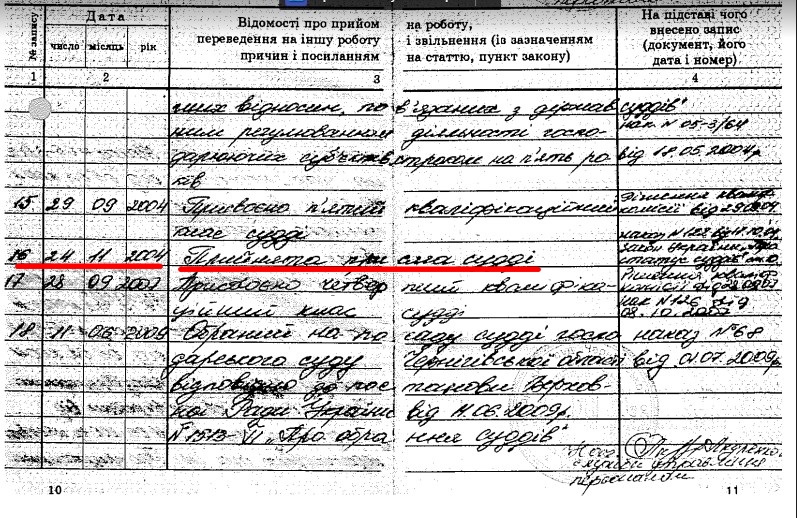 № запису
Дата
число місяць рік
Відомості про прийом на роботу,
переведення на іншу роботу і звільнення (із зазначенням
причин і посиланням на статтю, пункт закону)
На підставі чого
внесено запис
(документ, його
дата і номер)
1 2 3 4
них відносин, пов'язаних з держав суддів"
ним регулюванням діяльності госпо- нак N 05-3/64
дарюючих суб'єктів строком на п'ять ро від 18.05.2004р
ків
15. 29 09 2004 Присвоєно п'ятий кваліфікаційний Рішення кваліф.
клас судді
16 24 11 2004 Прийнята присяга судді Закон України "Про
статус суддів"
17 28 09 2007 Присвоєно четвер тий кваліфіка- Рішення кваліф
ційний клас судді нак N 126 від
08.10.2007
18. 11 06 2009 Обраний на по саду судді госпо наказ № 68
дарського суду Чернігівської області від 01.07.2009р
відповідно до пос танови Верхов-
ної Ради України від 11.06.2009р.
N 1513-VI "Про обра ння суддів"
управління
персоналом
10 11